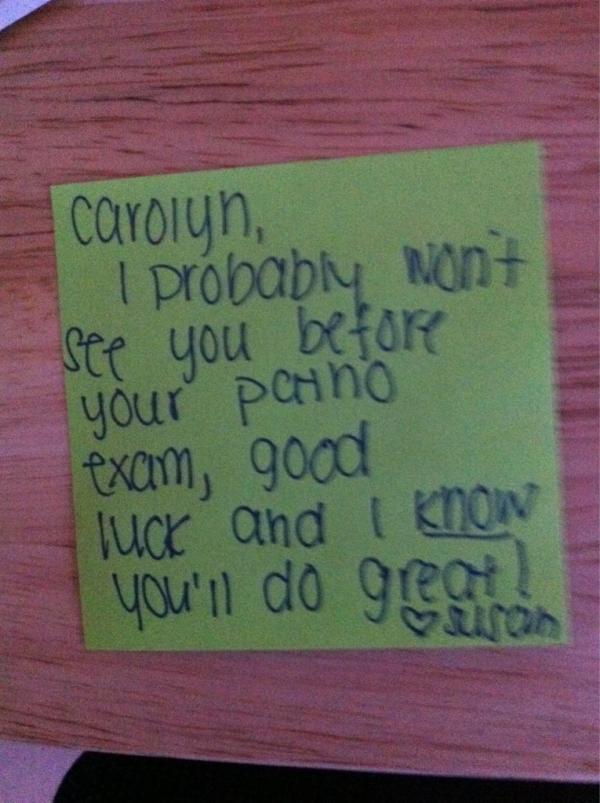 Carolyn,
I probably won't
see you before
your patho
exam, good
luck and I know
you'll do great!
♡ Susan